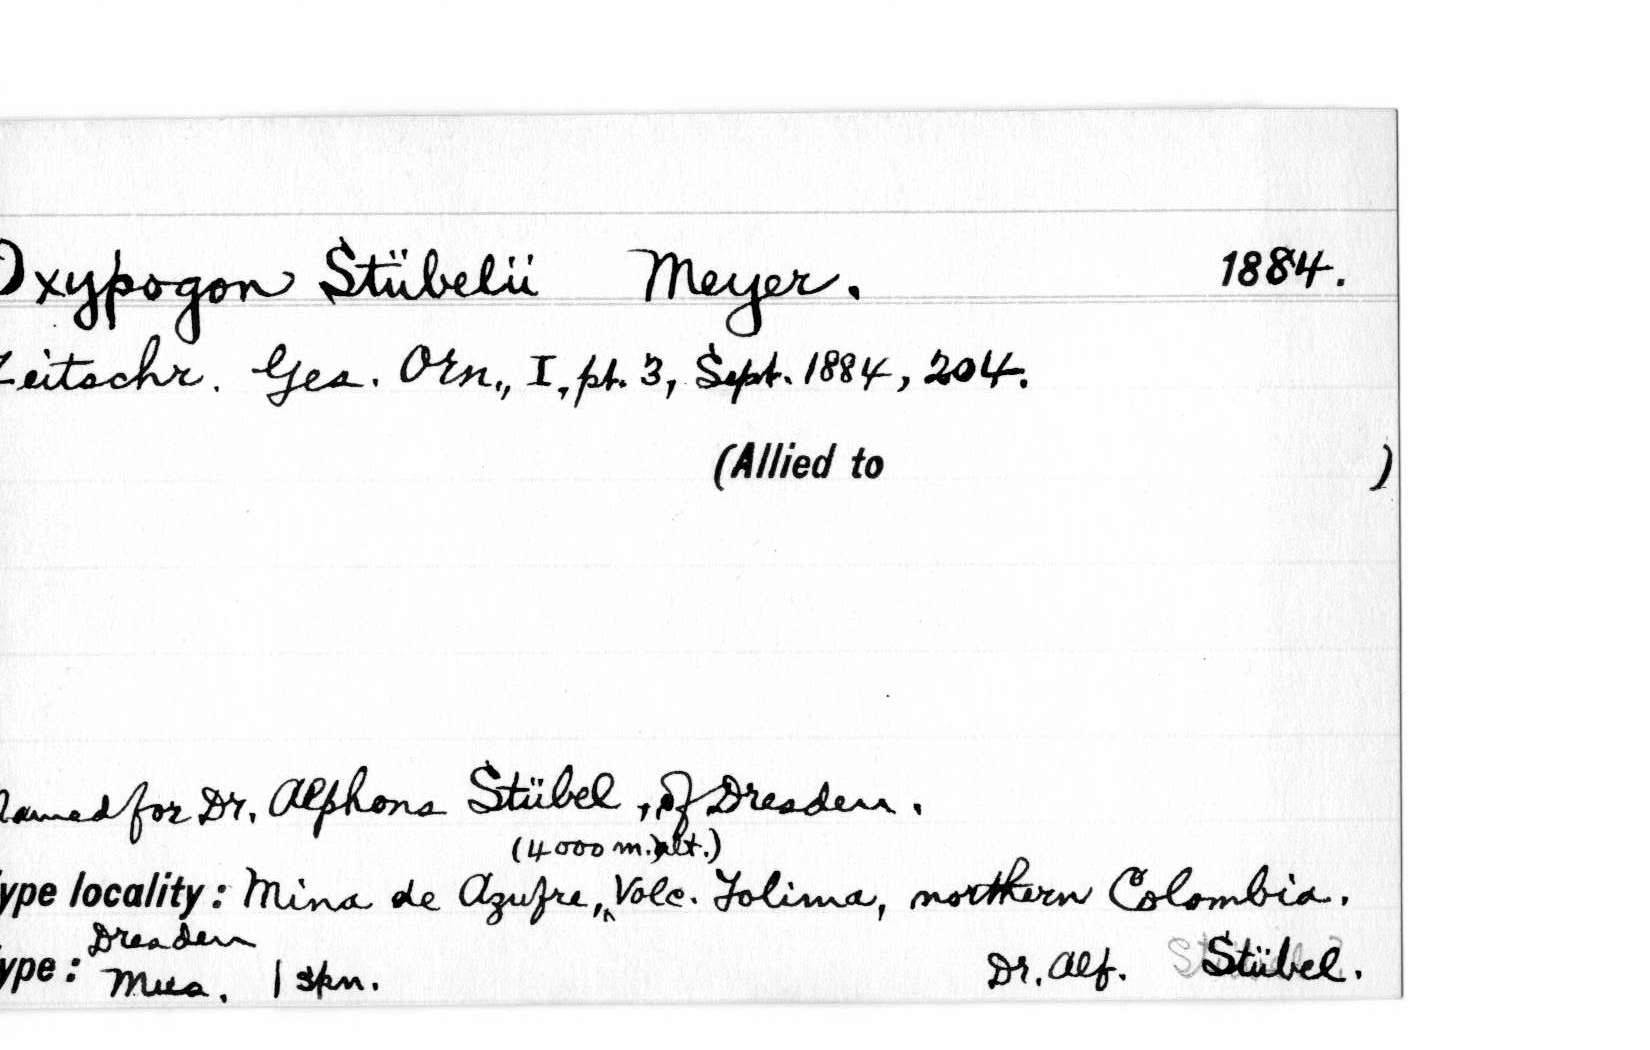 Oxypogon Stübelii Meyer. 1884.
Zeitschr. Ges. Orn., I, pt. 3, Sept. 1884, 204.
(Allied to )
Named for Dr. Alphons Stübel, of Dresden.
(4000 m. alt.)
Type locality: Mina de Azufre, Volc. Tolima, northern Colombia.
Dresden
Type: Mus. 1 spn. Dr. Alf. Stübel.